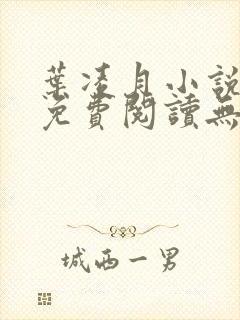 葉凌月小說
免費閱讀無
城西一男